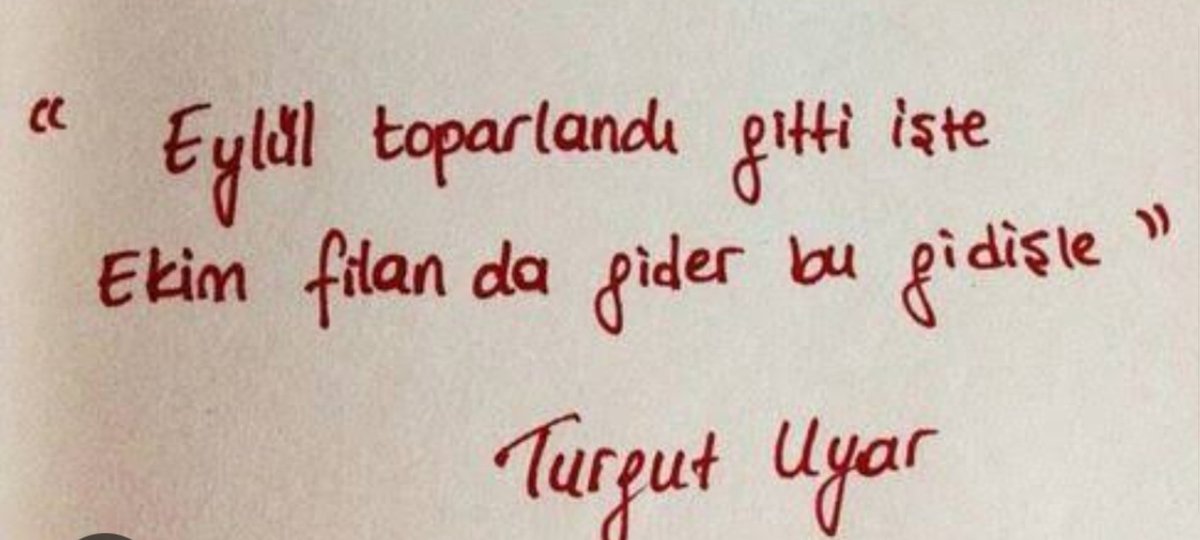 “ Eylül toparlandı gitti işte
Ekim filan da gider bu gidişle ”
Turgut Uyar